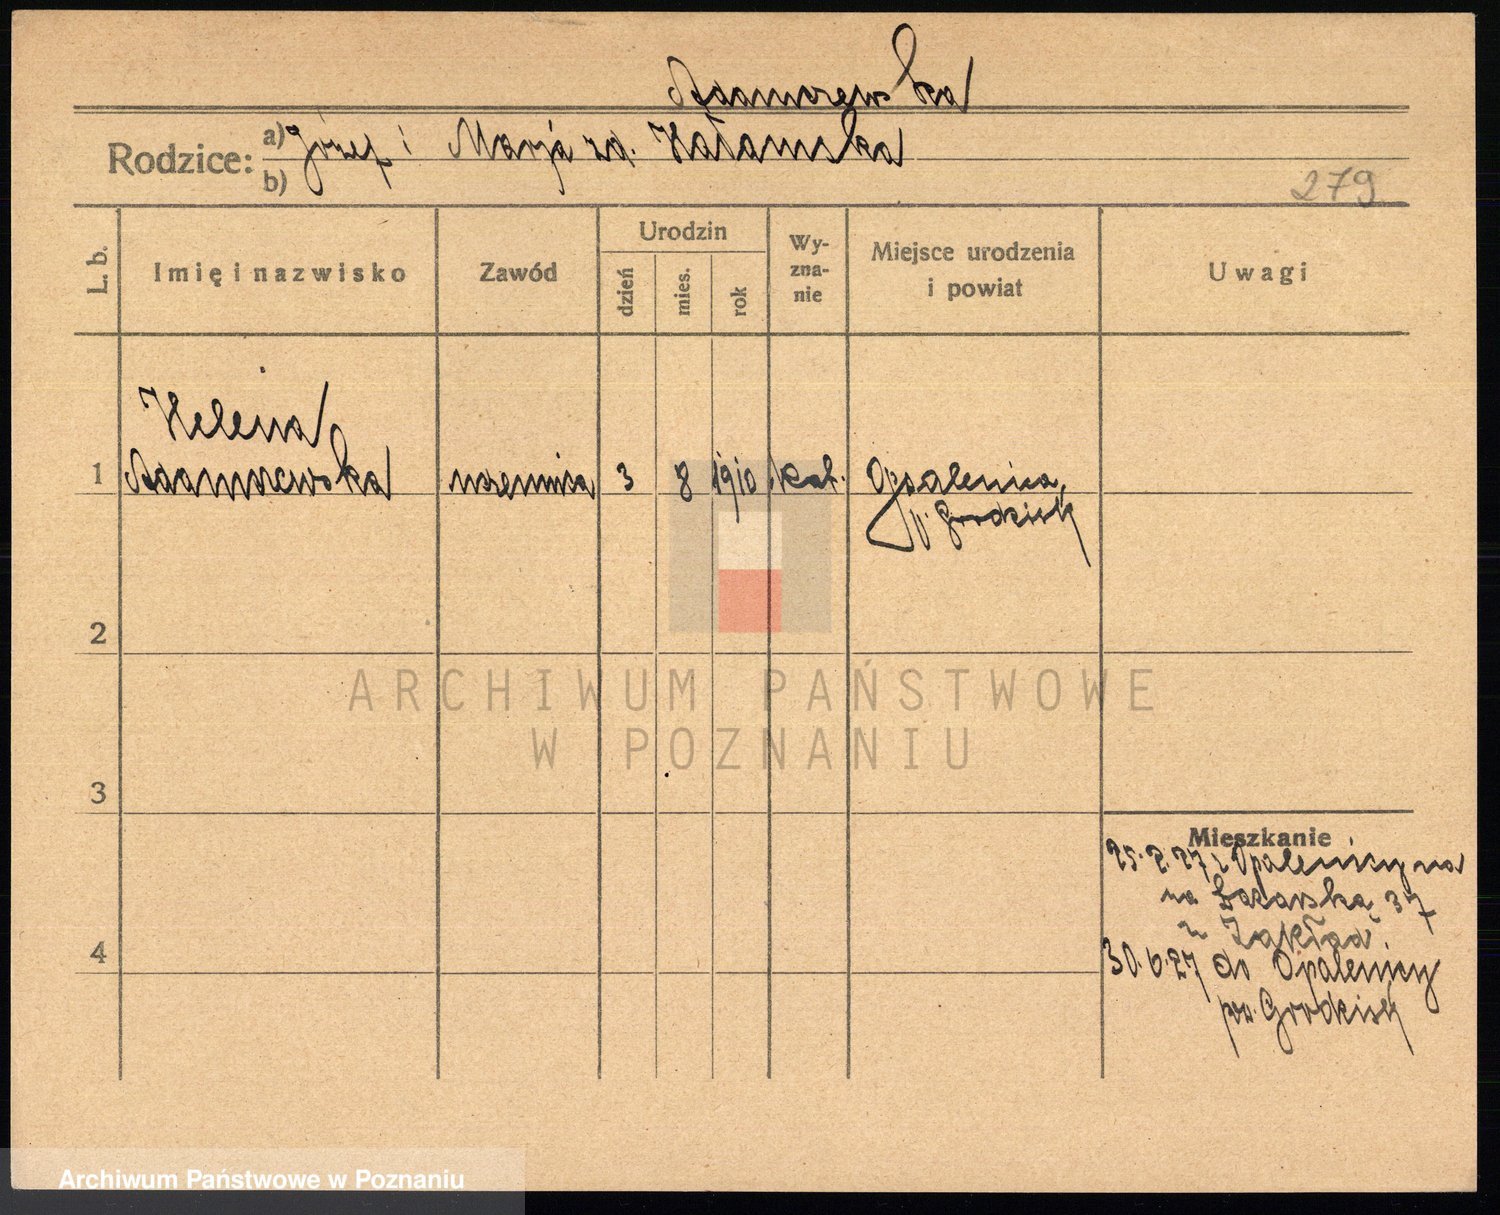 Adamczewska
Rodzice: a) Józef i Marja zd. Kałamska
b)
279
L. b.
Imię i nazwisko
Zawód
Urodzin
dzień
mies.
rok
Wy-
zna-
nie
Miejsce urodzenia
i powiat
Uwagi
Helena
1 Adamczewska uczennica 3 8 1910 kat. Opalenica,
p. Grodzisk
2
ARCHIWUM PAŃSTWOWE
W POZNANIU
3
Mieszkanie
25.2.27 z Opalenicy na
na Łazarska 37
Zakład.
4
30.6.27 do Opalenicy
pow. Grodzisk
Archiwum Państwowe w Poznaniu